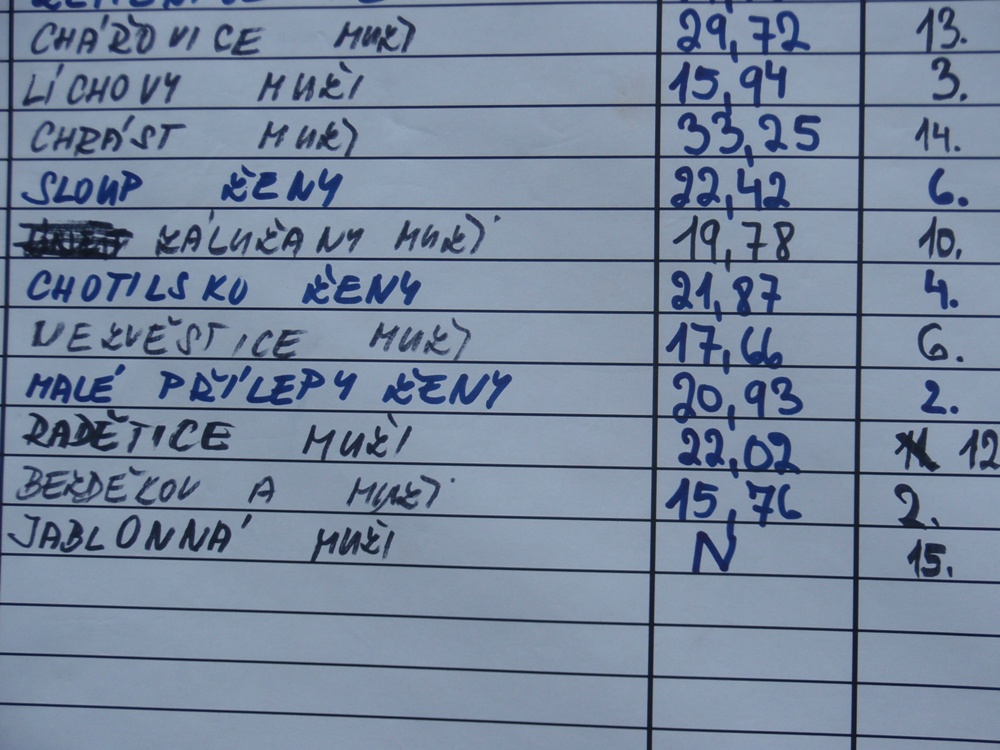 CHÁŘOVICE MUŽI 29,72 13.
LÍCHOVY MUŽI 15,94 3.
CHRÁST MUŽI 33,25 14.
SLOUP ŽENY 22,42 6.
ZÁLUŽANY MUŽI 19,78 10.
CHOTILSKO ŽENY 21,87 4.
NEZVĚSTICE MUŽI 17,66 6.
MALÉ PŘÍLEPY ŽENY 20,93 2.
RADĚTICE MUŽI 22,02 12
BEZDĚKOV A MUŽI 15,76 2.
JABLONNÁ MUŽI N 15.